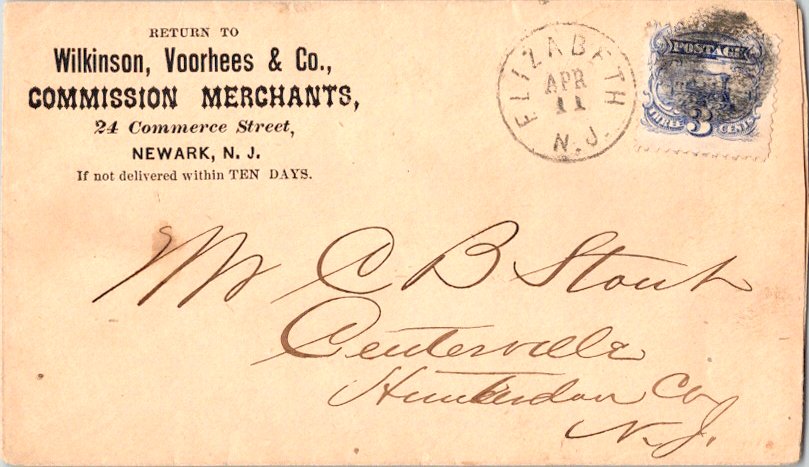 RETURN TO
Wilkinson, Voorhees & Co.,
COMMISSION MERCHANTS,
24 Commerce Street,
NEWARK, N. J.
If not delivered within TEN DAYS.
ELIZABETH
APR
11
N.J.
POSTAGE
THREE 3 CENTS
Mr C B Stout
Centerville
Hunterdon Co
N.J.